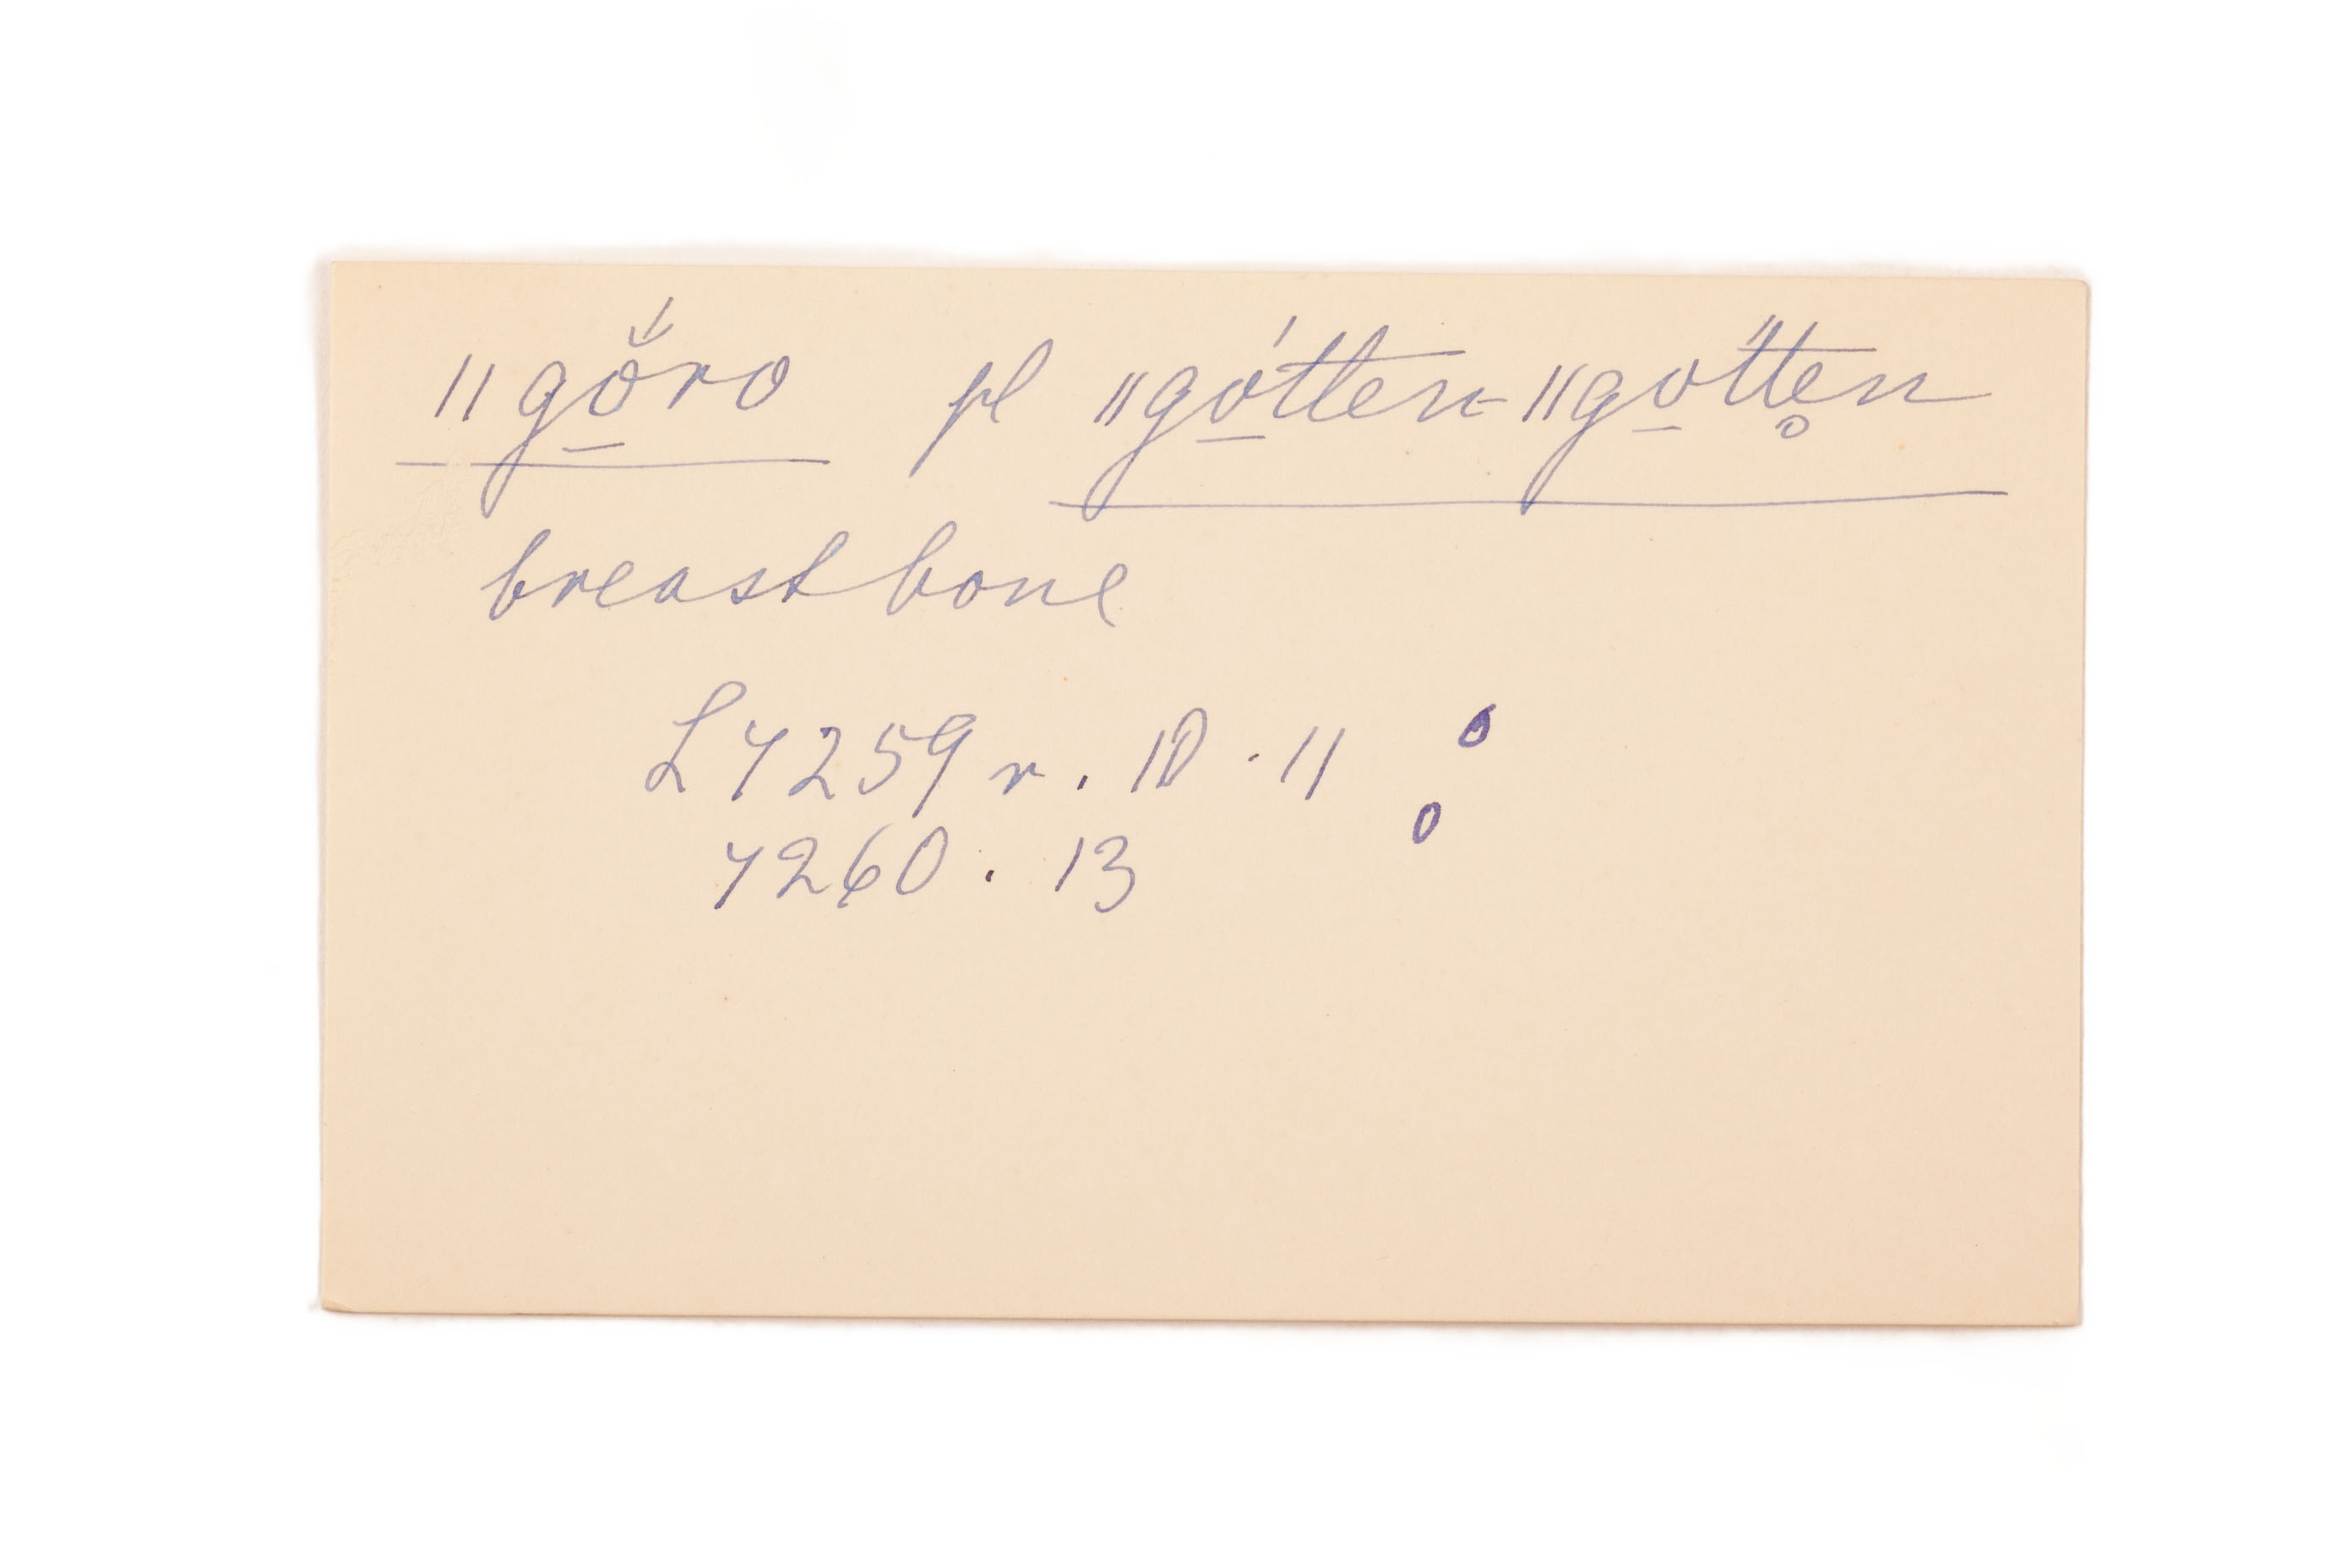 ǁgǒ̱́ro pl ǁgó̱tten-ǁgo̱tte̥n
breastbone
L 7259 r. 10 . 11
7260 . 13